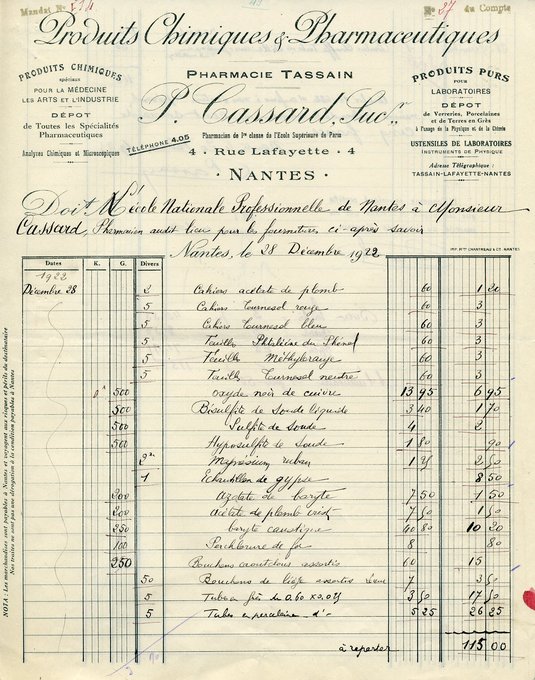 Mandat No 514
No 37 du Compte
Produits Chimiques & Pharmaceutiques
PRODUITS CHIMIQUES
spéciaux
POUR LA MÉDECINE
LES ARTS ET L'INDUSTRIE
DÉPOT
de Toutes les Spécialités
Pharmaceutiques
Analyses Chimiques et Microscopiques
PHARMACIE TASSAIN
P. Cassard, Sucr.
TÉLÉPHONE 4.05
Pharmacien de 1re classe de l'Ecole Supérieure de Paris
4 · Rue Lafayette · 4
· NANTES ·
PRODUITS PURS
POUR
LABORATOIRES
DÉPOT
de Verreries, Porcelaines
et de Terres en Grès
à l'usage de la Physique et de la Chimie
USTENSILES DE LABORATOIRES
INSTRUMENTS DE PHYSIQUE
Adresse Télégraphique :
TASSAIN-LAFAYETTE-NANTES
Doit M L'école Nationale Professionnelle de Nantes à Monsieur
Cassard, Pharmacien audit lieu pour les fournitures ci-après savoir
Nantes, le 28 Décembre 1922
IMP. Mme CHANTREAU & Cie - NANTES
Dates K. G. Divers
1922
Décembre 28 2 Cahiers acétate de plomb 60 1 20
5 Cahiers Tournesol rouge 60 3
5 Cahiers Tournesol bleu 60 3
5 Feuilles Phtaléine du Phénol 60 3
5 Feuilles Méthylorange 60 3
5 Feuilles Tournesol neutre 60 3
500 oxyde noir de cuivre 13 95 6 95
500 Bisulfite de soude liquide 3 40 1 70
500 Sulfite de soude 4 2
500 Hyposulfite de soude 1 80 90
2 Magnésium ruban 1 25 2 50
1 Echantillon de gypse 8 50
200 Azotate de baryte 7 50 1 50
200 acétate de plomb 7 50 1 50
250 baryte caustique 40 80 10 20
100 Perchlorure de fer 8 80
250 Bouchons caoutchouc assortis 60 15
50 Bouchons de liège assortis 7 3 50
5 Tubes en fer 3 50 17 50
5 Tubes en porcelaine do 5 25 26 25
à reporter 115 00
NOTA : Les marchandises sont payables à Nantes et voyagent aux risques et périls du destinataire
Nos traites ne sont pas une dérogation à la condition payables à Nantes.